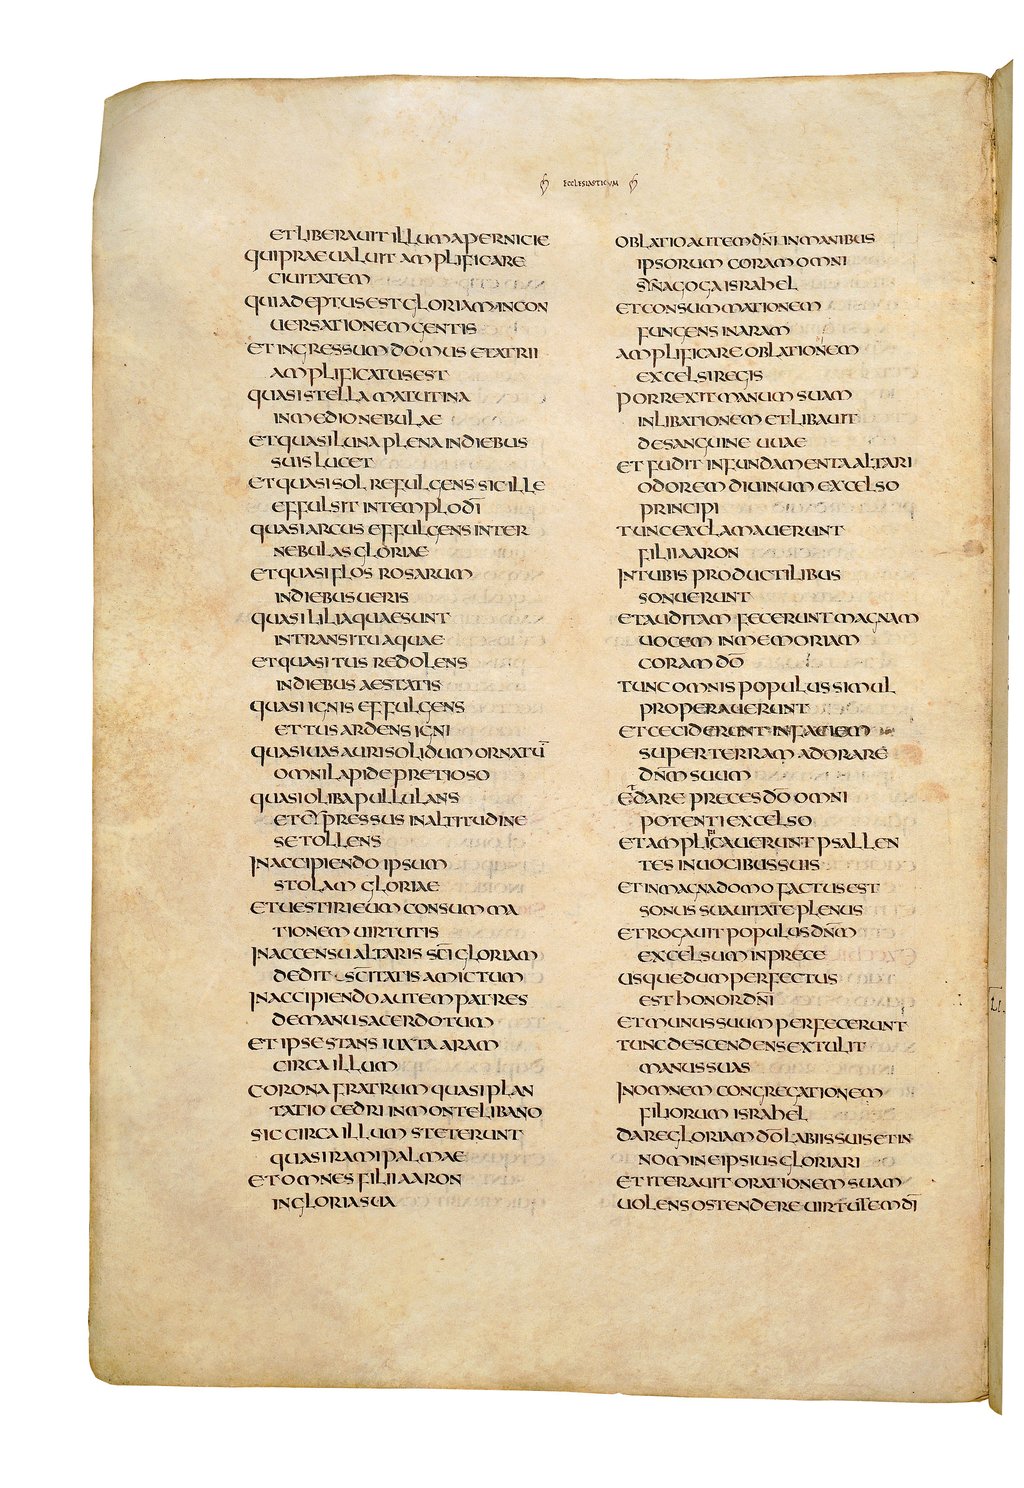 ECCLESIASTICUM
ET LIBERAUIT ILLUM A PERNICIE
QUI PRAEUALUIT AMPLIFICARE
CIUITATEM
QUI ADEPTUS EST GLORIAM IN CON
UERSATIONEM GENTIS
ET INGRESSUM DOMUS ET ATRII
AMPLIFICATUS EST
QUASI STELLA MATUTINA
IN MEDIO NEBULAE
ET QUASI LUNA PLENA IN DIEBUS
SUIS LUCET
ET QUASI SOL REFULGENS SIC ILLE
EFFULSIT IN TEMPLO DĪ
QUASI ARCUS EFFULGENS INTER
NEBULAS GLORIAE
ET QUASI FLOS ROSARUM
IN DIEBUS UERIS
QUASI LILIA QUAE SUNT
IN TRANSITU AQUAE
ET QUASI TUS REDOLENS
IN DIEBUS AESTATIS
QUASI IGNIS EFFULGENS
ET TUS ARDENS IGNI
QUASI UAS AURI SOLIDUM ORNATŪ
OMNI LAPIDE PRETIOSO
QUASI OLIBA PULLULANS
ET CYPRESSUS IN ALTITUDINE
SE TOLLENS
IN ACCIPIENDO IPSUM
STOLAM GLORIAE
ET UESTIRI EUM CONSUMMA
TIONEM UIRTUTIS
IN ACCENSU ALTARIS SC̄I GLORIAM
DEDIT SC̄ITATIS AMICTUM
IN ACCIPIENDO AUTEM PATRES
DE MANU SACERDOTUM
ET IPSE STANS IUXTA ARAM
CIRCA ILLUM
CORONA FRATRUM QUASI PLAN
TATIO CEDRI IN MONTE LIBANO
SIC CIRCA ILLUM STETERUNT
QUASI RAMI PALMAE
ET OMNES FILII AARON
IN GLORIA SUA
OBLATIO AUTEM DN̄I IN MANIBUS
IPSORUM CORAM OMNI
SYNAGOGA ISRAHEL
ET CONSUMMATIONEM
FUNGENS IN ARAM
AMPLIFICARE OBLATIONEM
EXCELSI REGIS
PORREXIT MANUM SUAM
IN LIBATIONEM ET LIBAUIT
DE SANGUINE UUAE
ET FUDIT IN FUNDAMENTA ALTARI
ODOREM DIUINUM EXCELSO
PRINCIPI
TUNC EXCLAMAUERUNT
FILII AARON
IN TUBIS PRODUCTILIBUS
SONUERUNT
ET AUDITAM FECERUNT MAGNAM
UOCEM IN MEMORIAM
CORAM DŌ
TUNC OMNIS POPULUS SIMUL
PROPERAUERUNT
ET CECIDERUNT IN FACIEM
SUPER TERRAM ADORARE
DN̄M SUUM
ET DARE PRECES DŌ OMNI
POTENTI EXCELSO
ET AMPLIFICAUERUNT PSALLEN
TES IN UOCIBUS SUIS
ET IN MAGNA DOMO FACTUS EST
SONUS SUAUITATE PLENUS
ET ROGAUIT POPULUS DN̄M
EXCELSUM IN PRECE
USQUEDUM PERFECTUS
EST HONOR DN̄I
ET MUNUS SUUM PERFECERUNT
TUNC DESCENDENS EXTULIT
MANUS SUAS
IN OMNEM CONGREGATIONEM
FILIORUM ISRAHEL
DARE GLORIAM DŌ LABIIS SUIS ET IN
NOMINE IPSIUS GLORIARI
ET ITERAUIT ORATIONEM SUAM
UOLENS OSTENDERE UIRTUTEM DĪ